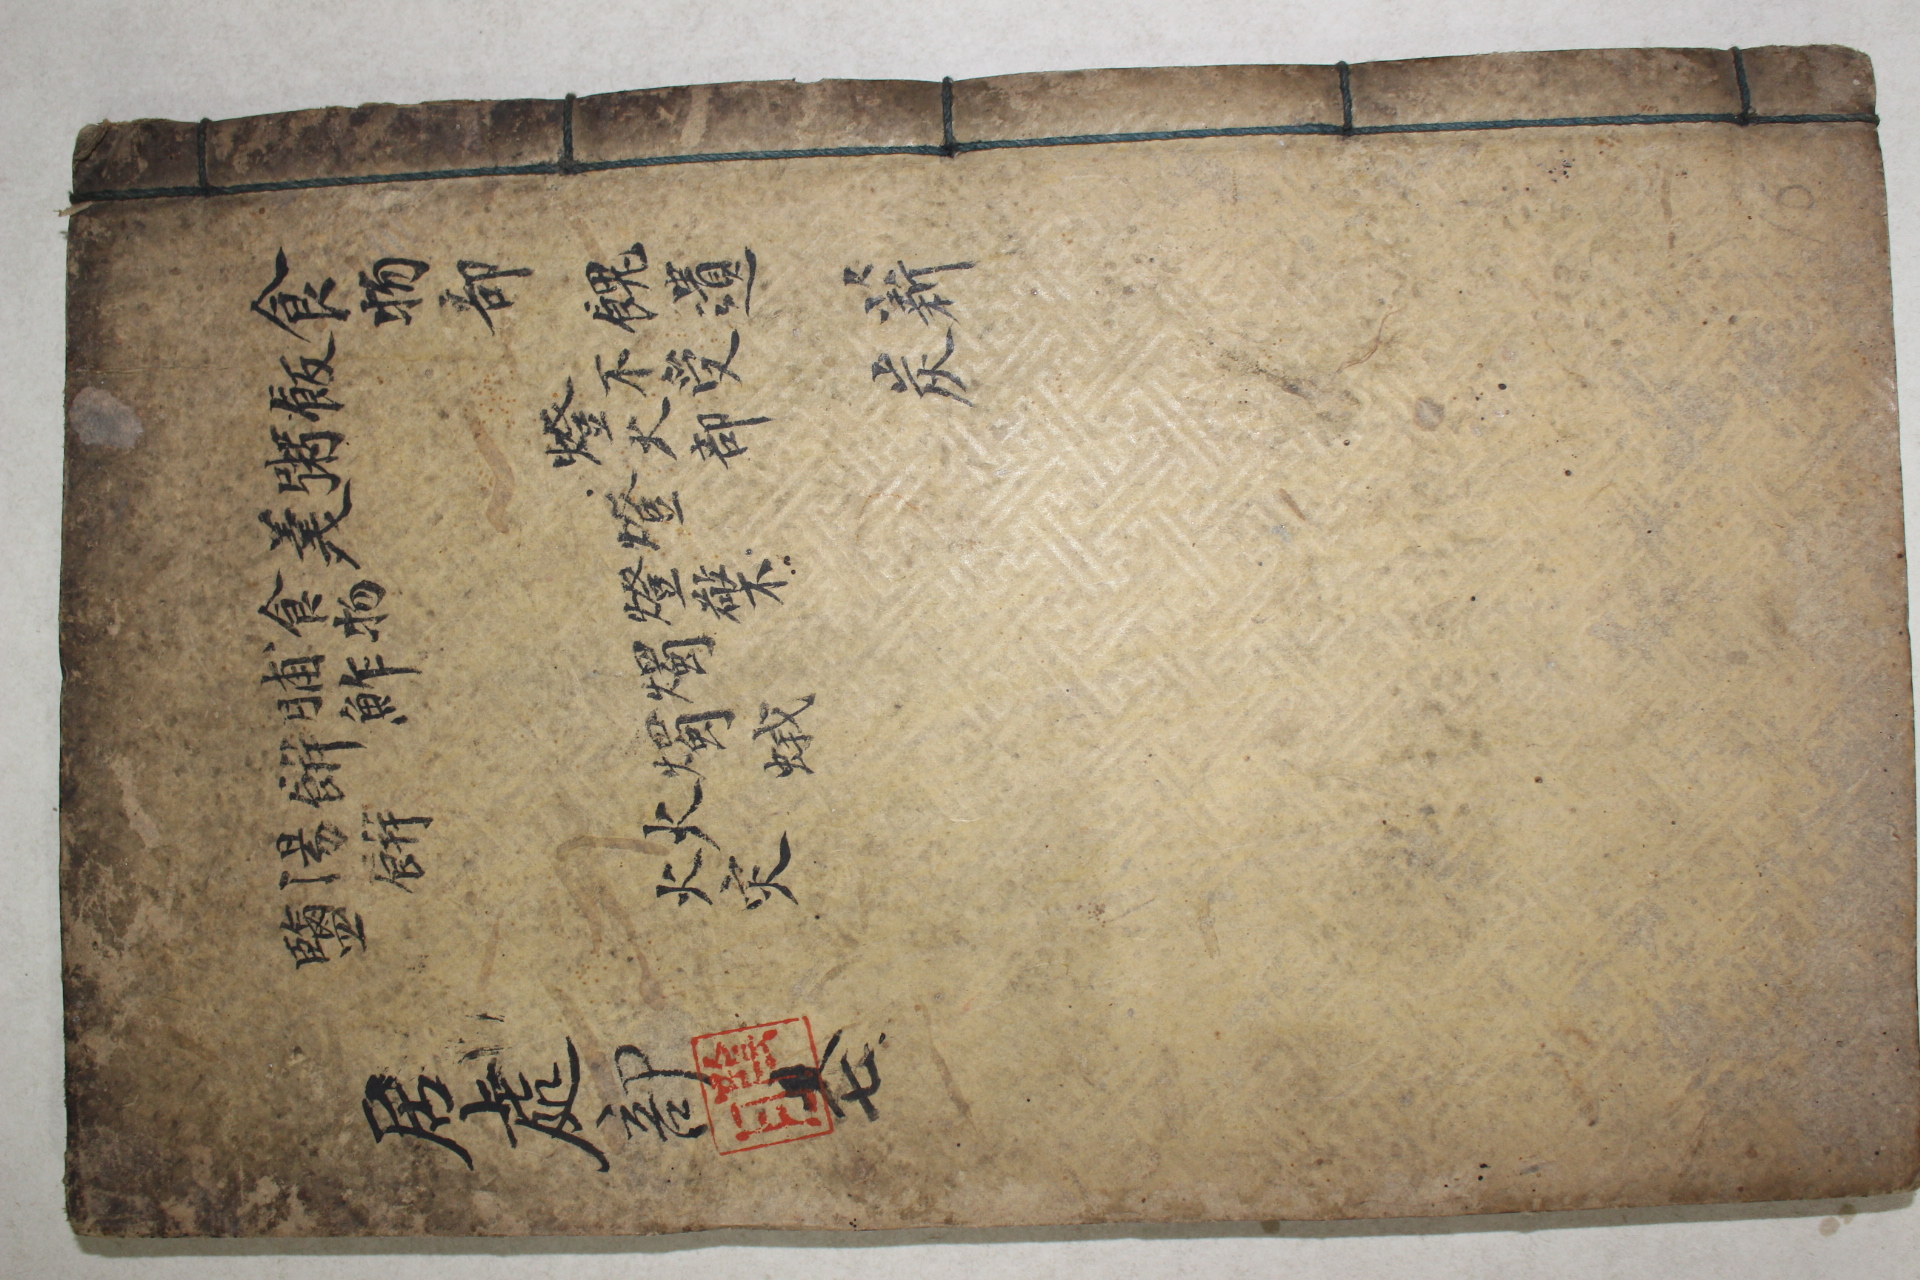 食物部
飯
粥
羹
食物
脯鮓
餠
湯餠
鹽
餽遺
不受
燈火部
燈
燈檠
燭
燭蛾
火
火灾
薪
炭
居處部
七